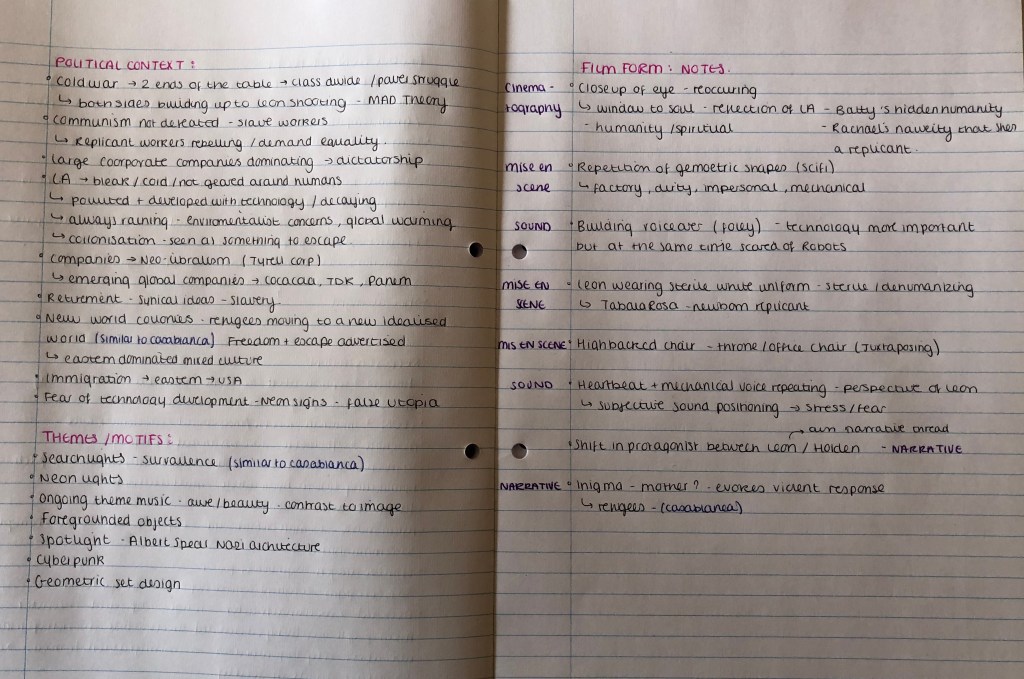 POLITICAL CONTEXT:
• Cold war → 2 ends of the table → class divide / power struggle
↳ both sides building up to Leon shooting - MAD Theory
• Communism not defeated - slave workers
↳ Replicant workers rebelling / demand equality.
• Large coorporate companies dominating → dictatorship
• LA → bleak / cold / not geared around humans
↳ polluted + developed with technology / decaying
↳ always raining - enviromentalist concerns, global warming
↳ collonisation - seen as something to escape.
• Companies → Neo-libralism (Tyrell corp)
↳ emerging global companies → cocacaa, TDK, Panam
• Retirement - synical ideas - slavery.
• New world colonies - refugees moving to a new idealised
world (similar to casablanca) Freedom + escape advertised
↳ eastern dominated mixed culture
• Immigration → eastern → USA
• Fear of technology development - Neon signs - false utopia
THEMES / MOTIFS:
• Searchlights - survailence (similar to casablanca)
• Neon lights
• ongoing theme music - awe / beauty - contrast to image
• Foregrounded objects
• Spotlight - Albert Speer Nazi architecture
• Cyberpunk
• Geometric set design
FILM FORM: NOTES.
Cinema- • Close up of eye - reoccuring
tography ↳ window to soul - reflection of LA - Batty's hidden humanity
- humanity / spiritual - Rachael's naiveity that shes
a replicant.
mise en • Repetition of gemoetric shapes (scifi)
scene ↳ factory, dirty, impersonal, mechanical
SOUND • Building voiceover (foley) - technology more important
but at the same time scared of Robots
MISE EN • Leon wearing sterile white uniform - sterile / dehumanizing
SCENE ↳ Tabala Rosa - newborn replicant
MIS EN SCENE • Highbacked chair - throne / office chair (Juxtaposing)
SOUND • Heartbeat + mechanical voice repeating - perspective of Leon
↳ subjective sound positioning → stress / fear
→ own narrative thread
• Shift in protragonist between Leon / Holden - NARRATIVE
NARRATIVE • Inigma - mother? - evokes violent response
↳ refugees - (casablanca)